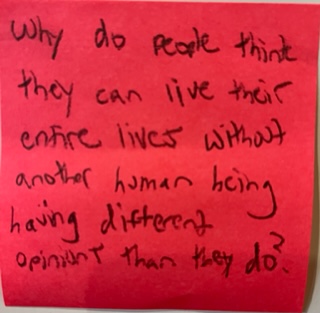 Why do people think
they can live their
entire lives without
another human being
having different
opinions than they do?